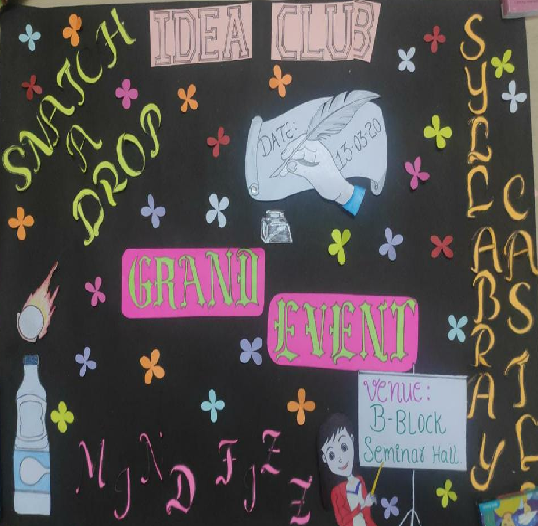 IDEA CLUB
SNATCH
A
DROP
DATE:
13-03-20
GRAND
EVENT
VENUE:
B-BLOCK
Seminar Hall
MIND FIZZ
SYLLABRAY